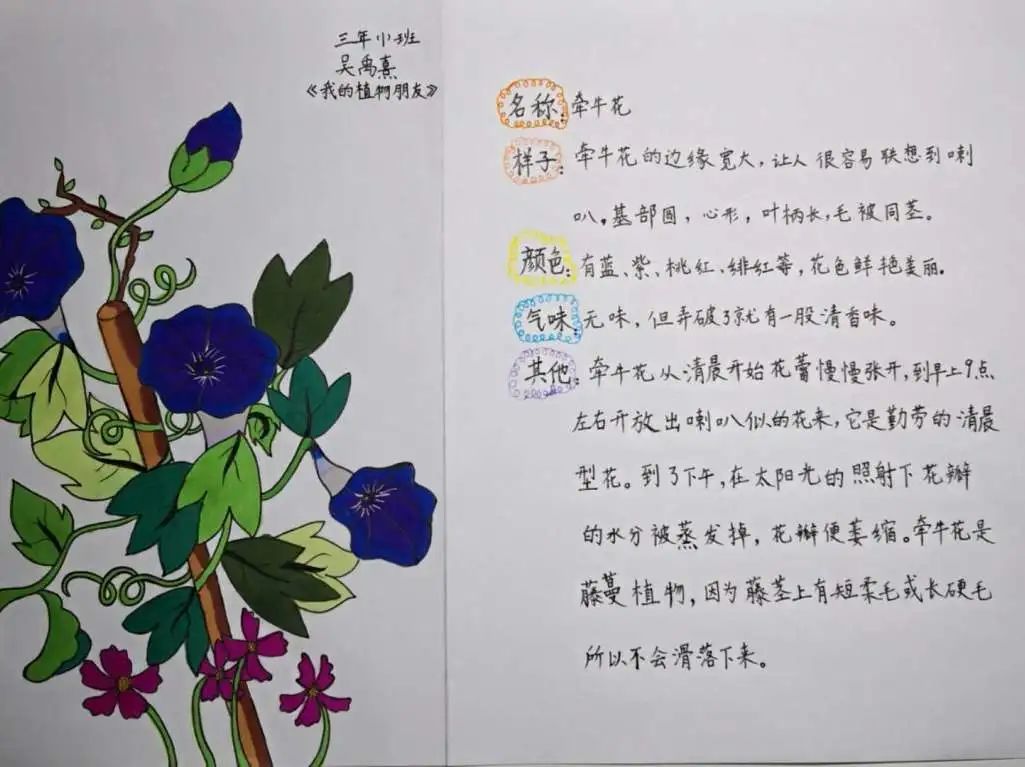 三年小班
吴禹熹
《我的植物朋友》
名称：牵牛花
样子：牵牛花的边缘宽大，让人很容易联想到喇
叭。基部圆，心形，叶柄长，毛被同茎。
颜色：有蓝、紫、桃红、绯红等，花色鲜艳美丽。
气味：无味，但弄破了就有一股清香味。
其他：牵牛花从清晨开始花蕾慢慢张开，到早上9点
左右开放出喇叭似的花来，它是勤劳的清晨
型花。到了下午，在太阳光的照射下花瓣
的水分被蒸发掉，花瓣便萎缩。牵牛花是
藤蔓植物，因为藤茎上有短柔毛或长硬毛
所以不会滑落下来。